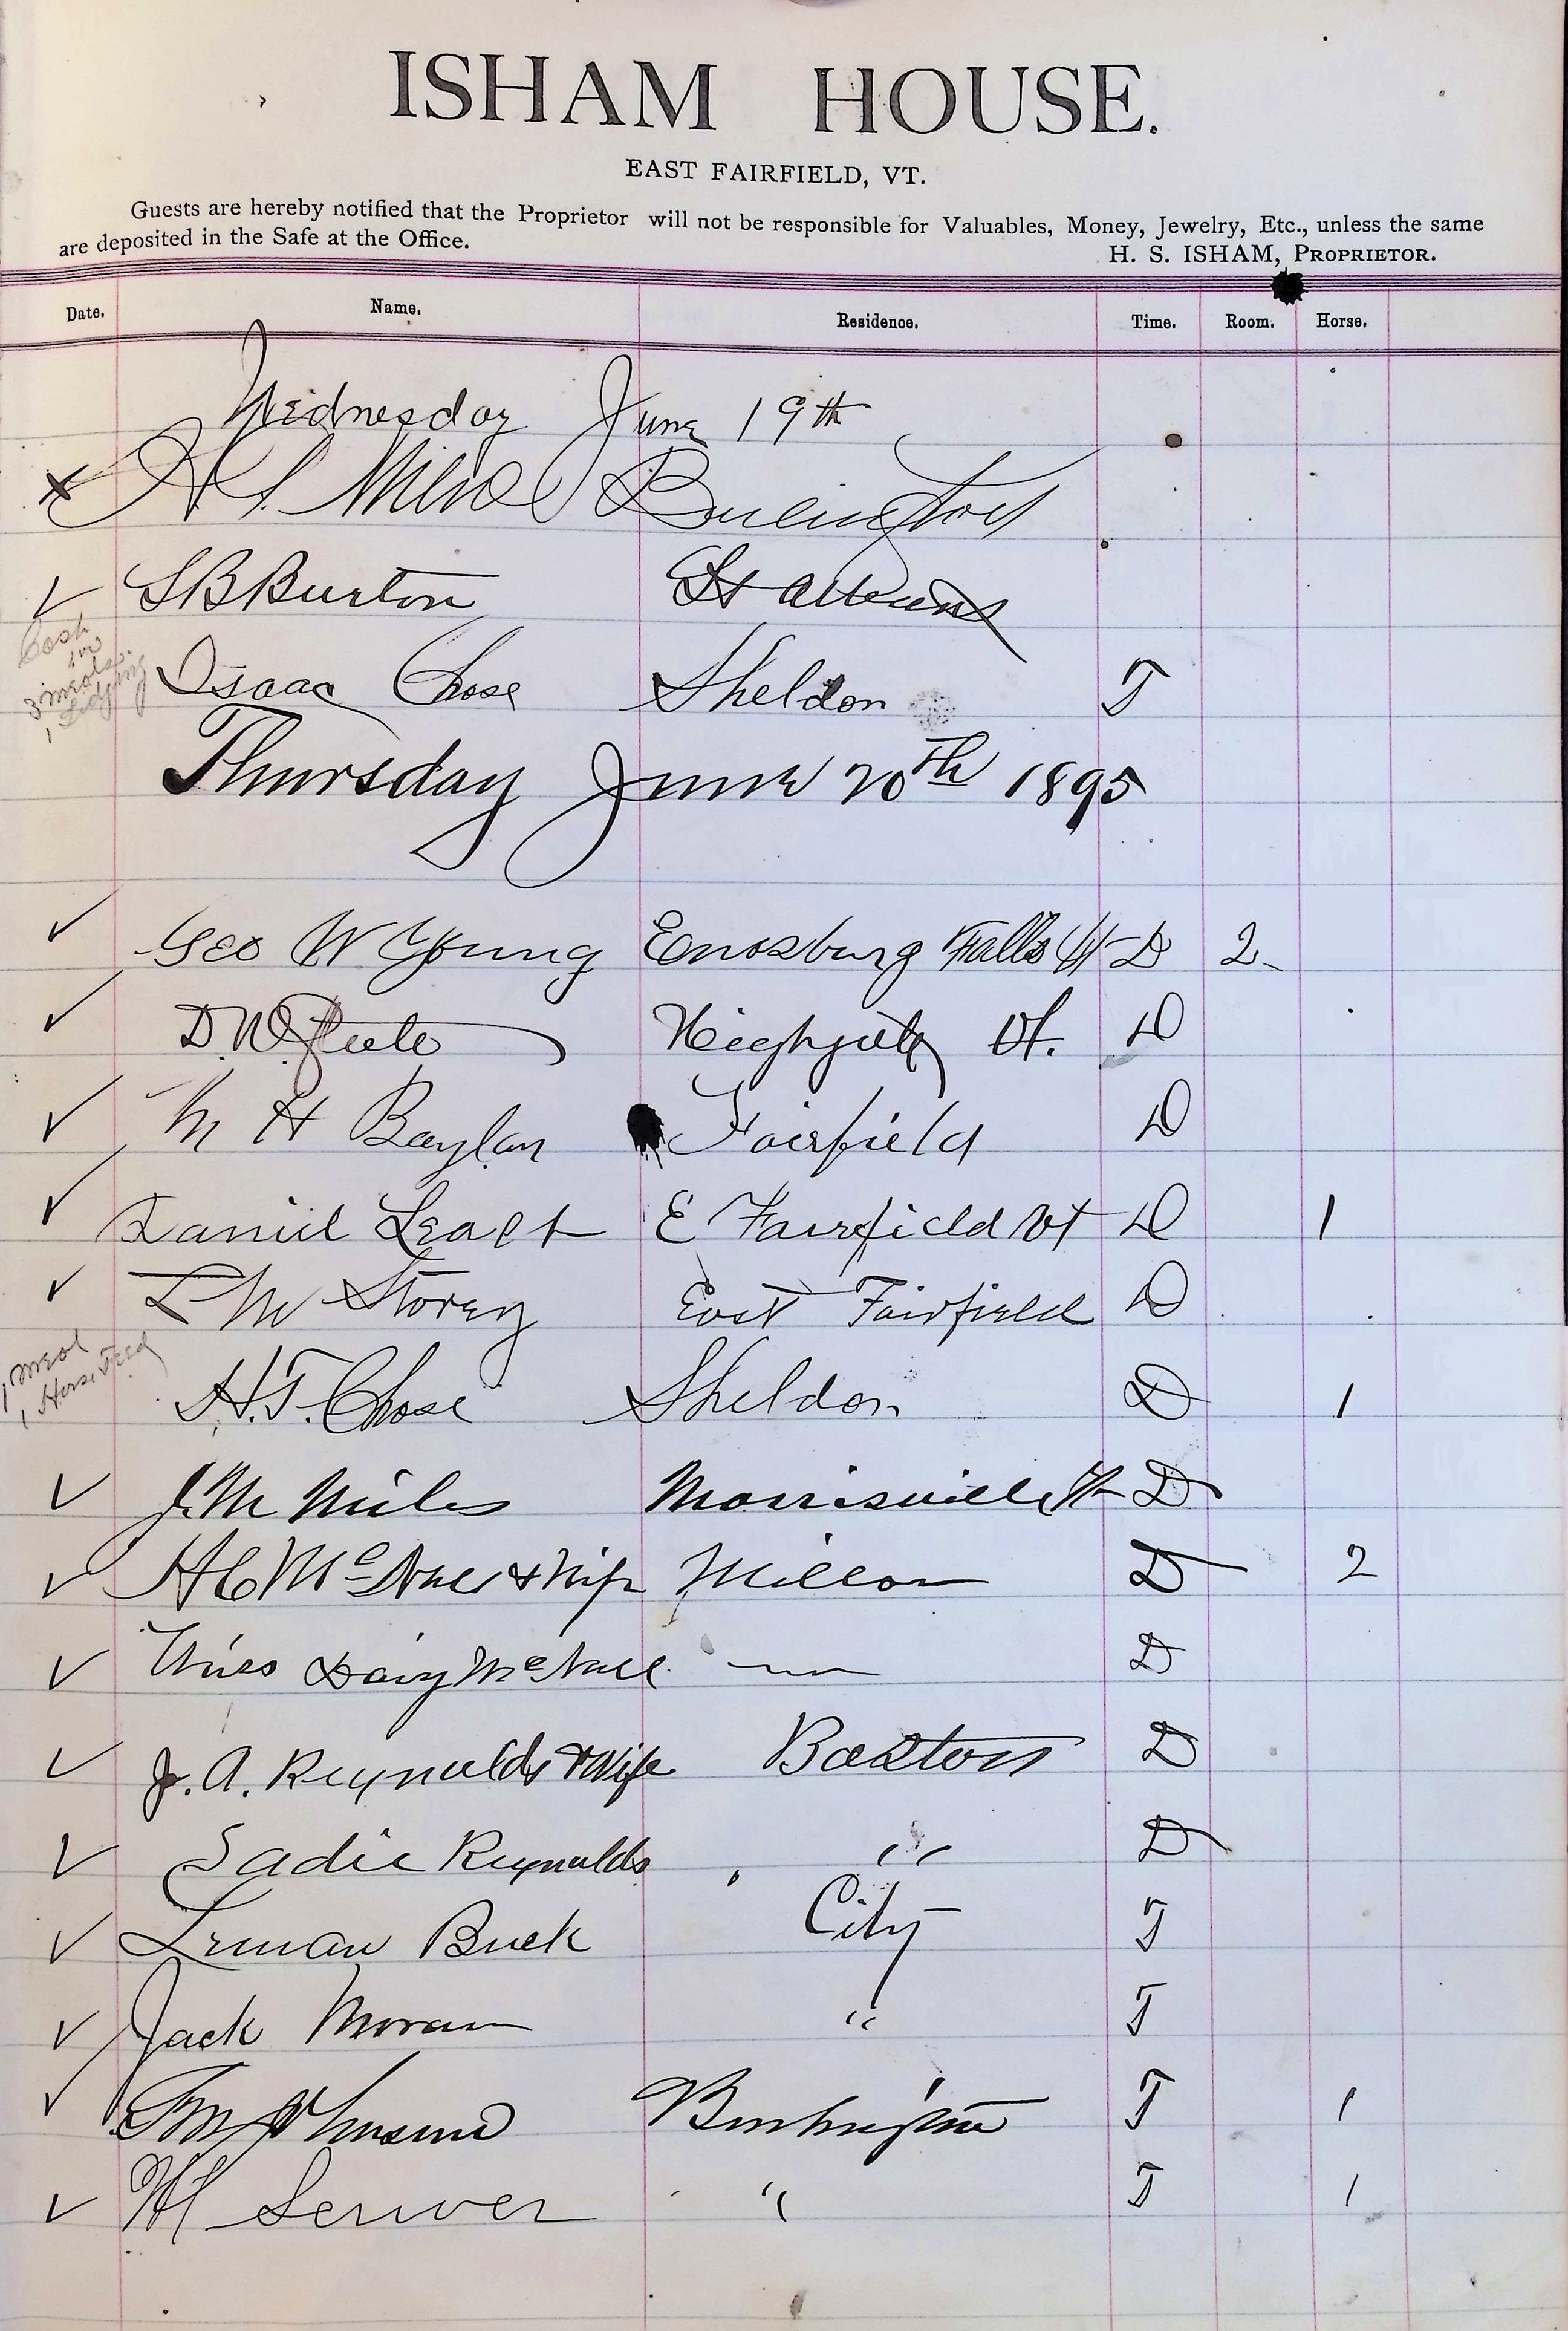 ISHAM HOUSE.
EAST FAIRFIELD, VT.
Guests are hereby notified that the Proprietor will not be responsible for Valuables, Money, Jewelry, Etc., unless the same
are deposited in the Safe at the Office.
H. S. ISHAM, PROPRIETOR.
Date. Name. Residence. Time. Room. Horse.
Wednesday June 19th
Burlington
S B Burton St Albans
Cash for 3 meals 1 Lodging
Isaac Chase Sheldon T
Thursday June 20th 1895
Geo W Young Enosburg Falls Vt D 2
D. W. Highgate Vt. D
M H Baylan Fairfield D
Daniel Leach E Fairfield Vt D 1
L M Storey East Fairfield D
1 meal 1 Horse Feed
H. T. Chase Sheldon D 1
J. M Miles Morrisville Vt D
H C & Wife Milton D 2
Miss Daisy D
J. A. Reynolds & Wife Barton D
Sadie Reynolds " D
Leman Buck City T
Jack Moran " T
Burlington T 1
Scriver " T 1